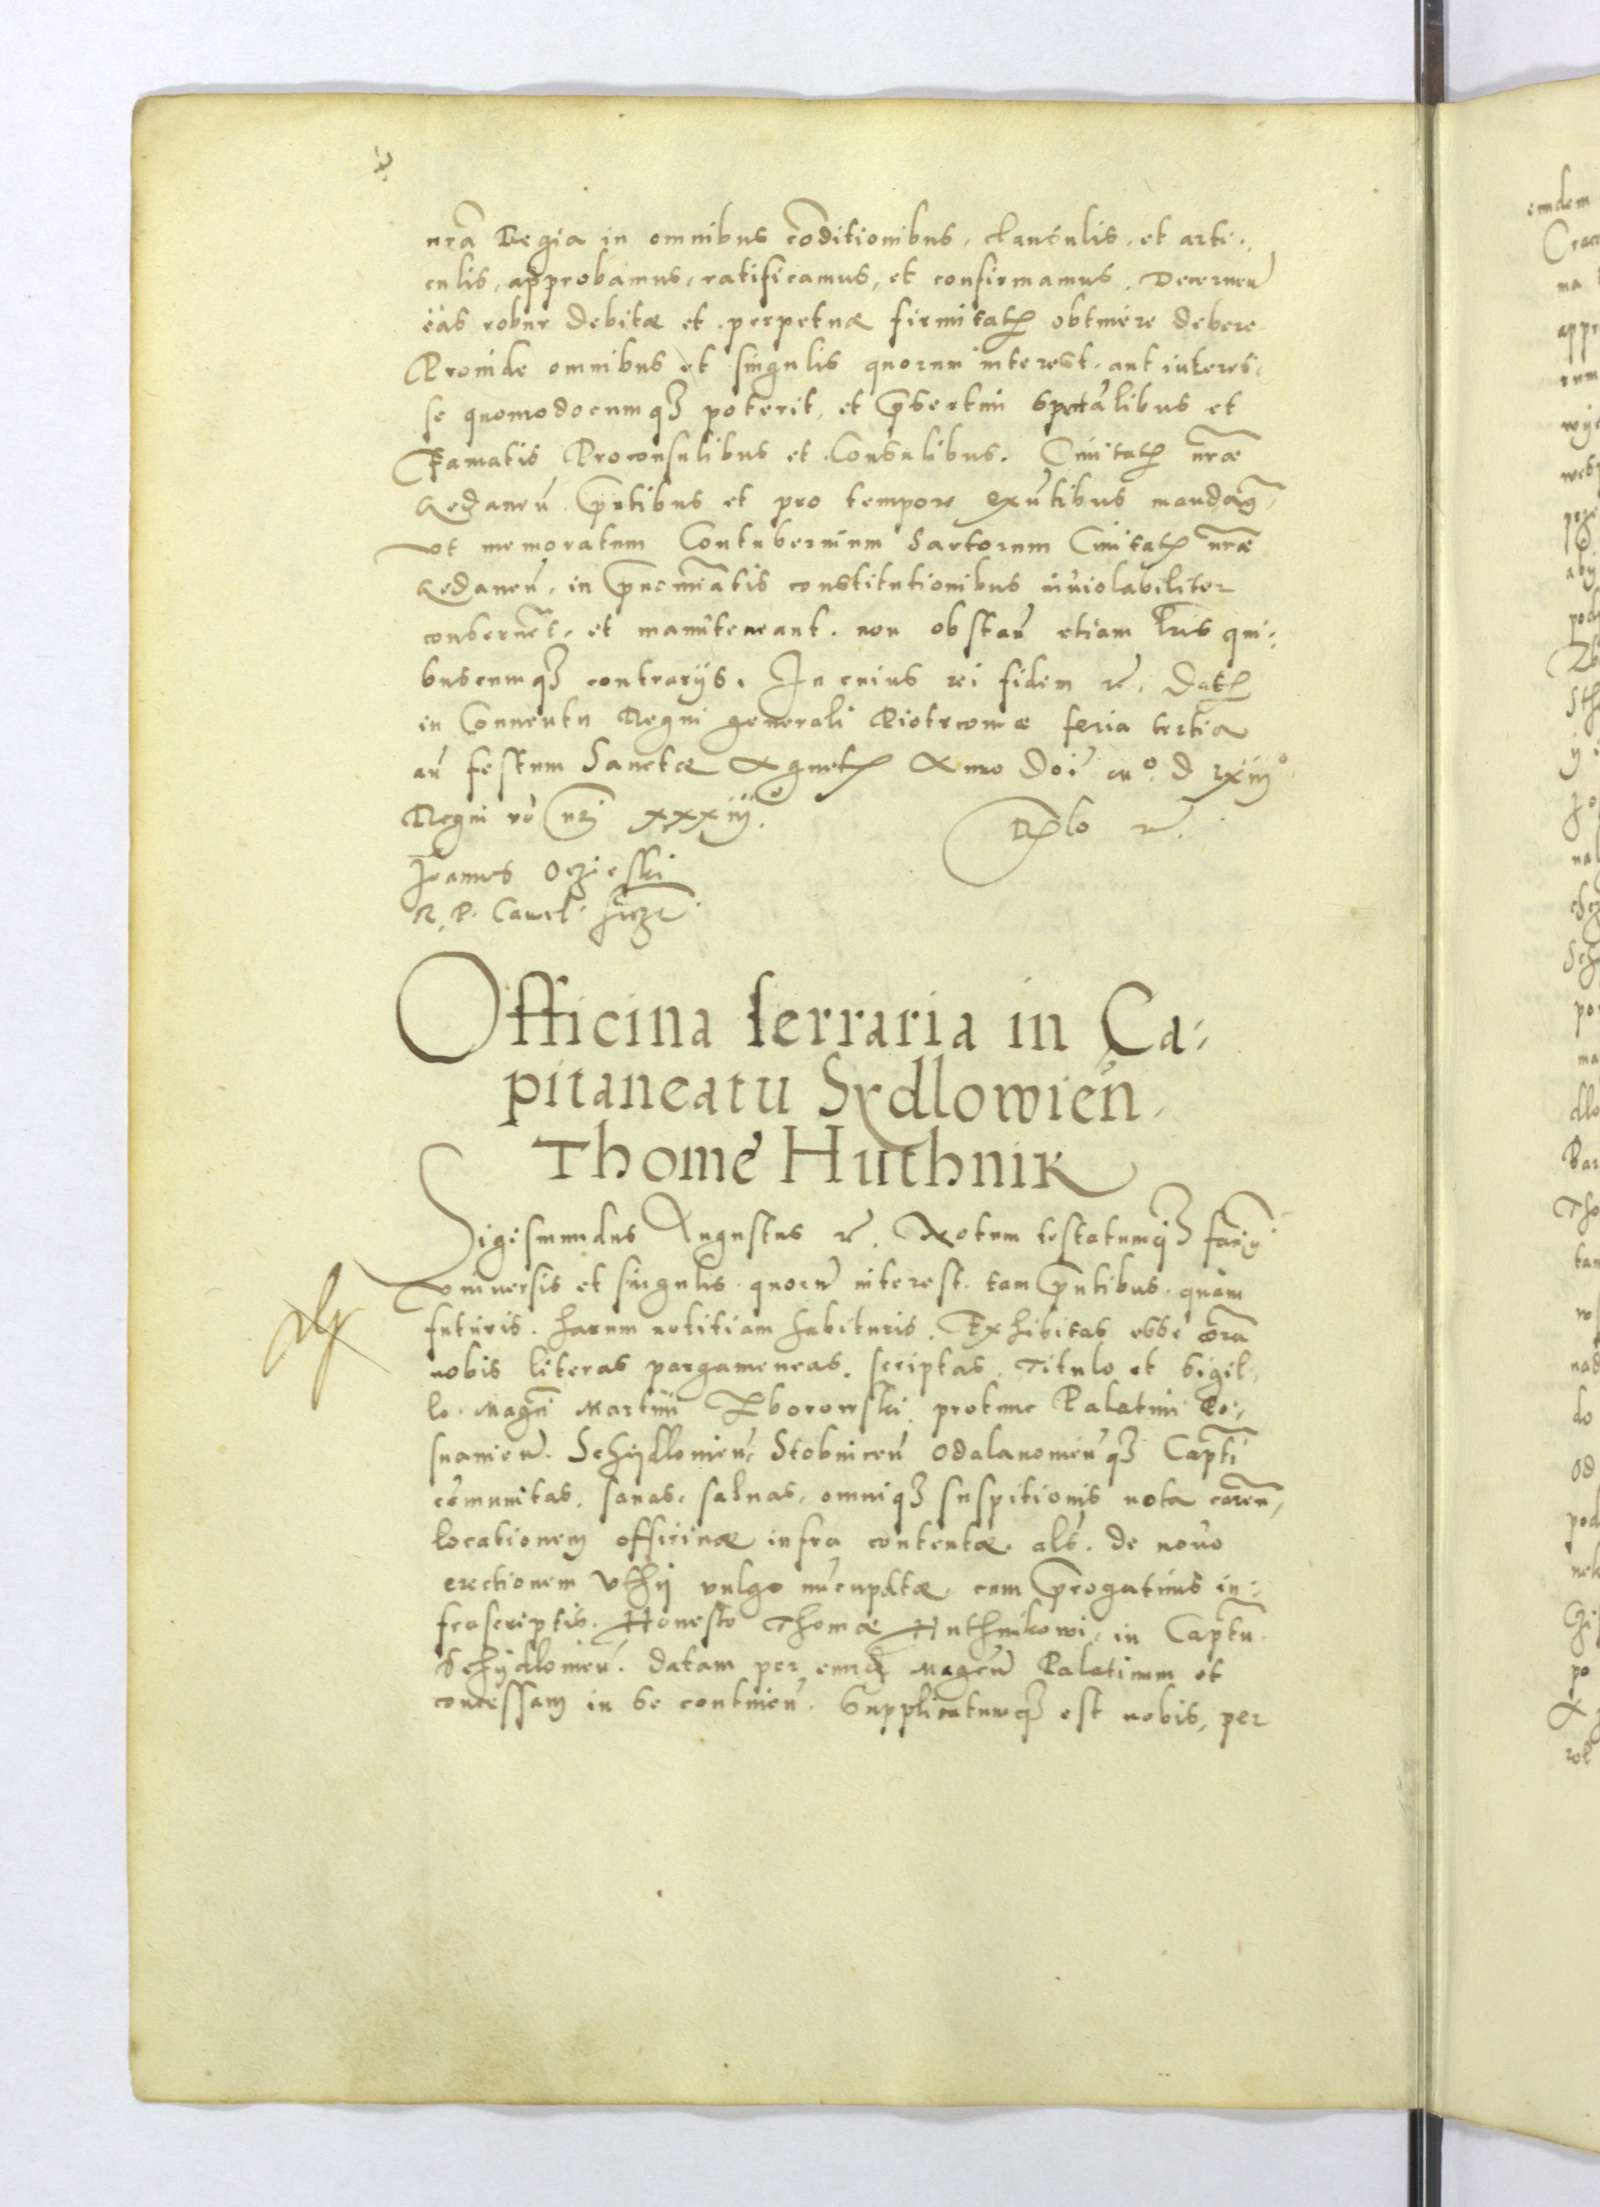 nrã Regia in omnibus cõditionibus, clausulis, et arti-
culis, approbamus, ratificamus, et confirmamus. Decernen̄
eas robur debitæ et perpetuæ firmitatꝭ obtinere debere
Proinde omnibus et singulis quorum interest, aut interes-
se quomodocumqꝫ poterit, et p̄sertim spectãlibus et
Famatis Proconsulibus et Consulibus. Civitatꝭ nrãe
Gedanen̄ p̄ntibus et pro tempore exñtibus mandamꝯ
Ut memoratum Contubernium Sartorum Civitatꝭ nrãe
Gedanen̄, in p̄nominatis constitutionibus inviolabiliter
conservent, et manuteneant. non obstan̄ etiam
buscumqꝫ contrarijs. In cuius rei fidem etc. Datꝭ
in Conventu Regni generali Piotrcoviæ feria tertia
an̄ festum Sanctæ Agnetꝭ Anno Doī Mº D lxiijº
Regni vō nrī xxxiijº. Rꝭlo etc.
Joannes Oczieski
R. P. Cancel.
Officina ferraria in Ca-
pitaneatu Sydlowien̄
Thome Huthnik
Sigismundus Augustus etc. Notum testatumqꝫ facimꝯ
Universis et singulis quorū interest. tam p̄ntibus quam
futuris. harum notitiam habituris. Exhibitas esse corã
nobis literas pargameneas, scriptas, Titulo et Sigil-
lo Magcī Martini Zborowski protunc Palatini Po-
snanien̄. Schydlovien̄, Stobnicen̄ Odalanovien̄qꝫ Captī
cõmunitas, sanas, salvas, omniqꝫ suspitionis nota caren̄,
locationem officinæ infra contentæ. alt̄. de novo
erectionem Vthij vulgo nūcupatæ, cum p̄rogativis in-
frascriptis. Honesto Thomæ Huthnikowi, in Captū
Schydlovien̄. datam per eundē Magcū Palatinum et
concessam in se continen̄. Supplicatumqꝫ est nobis, per